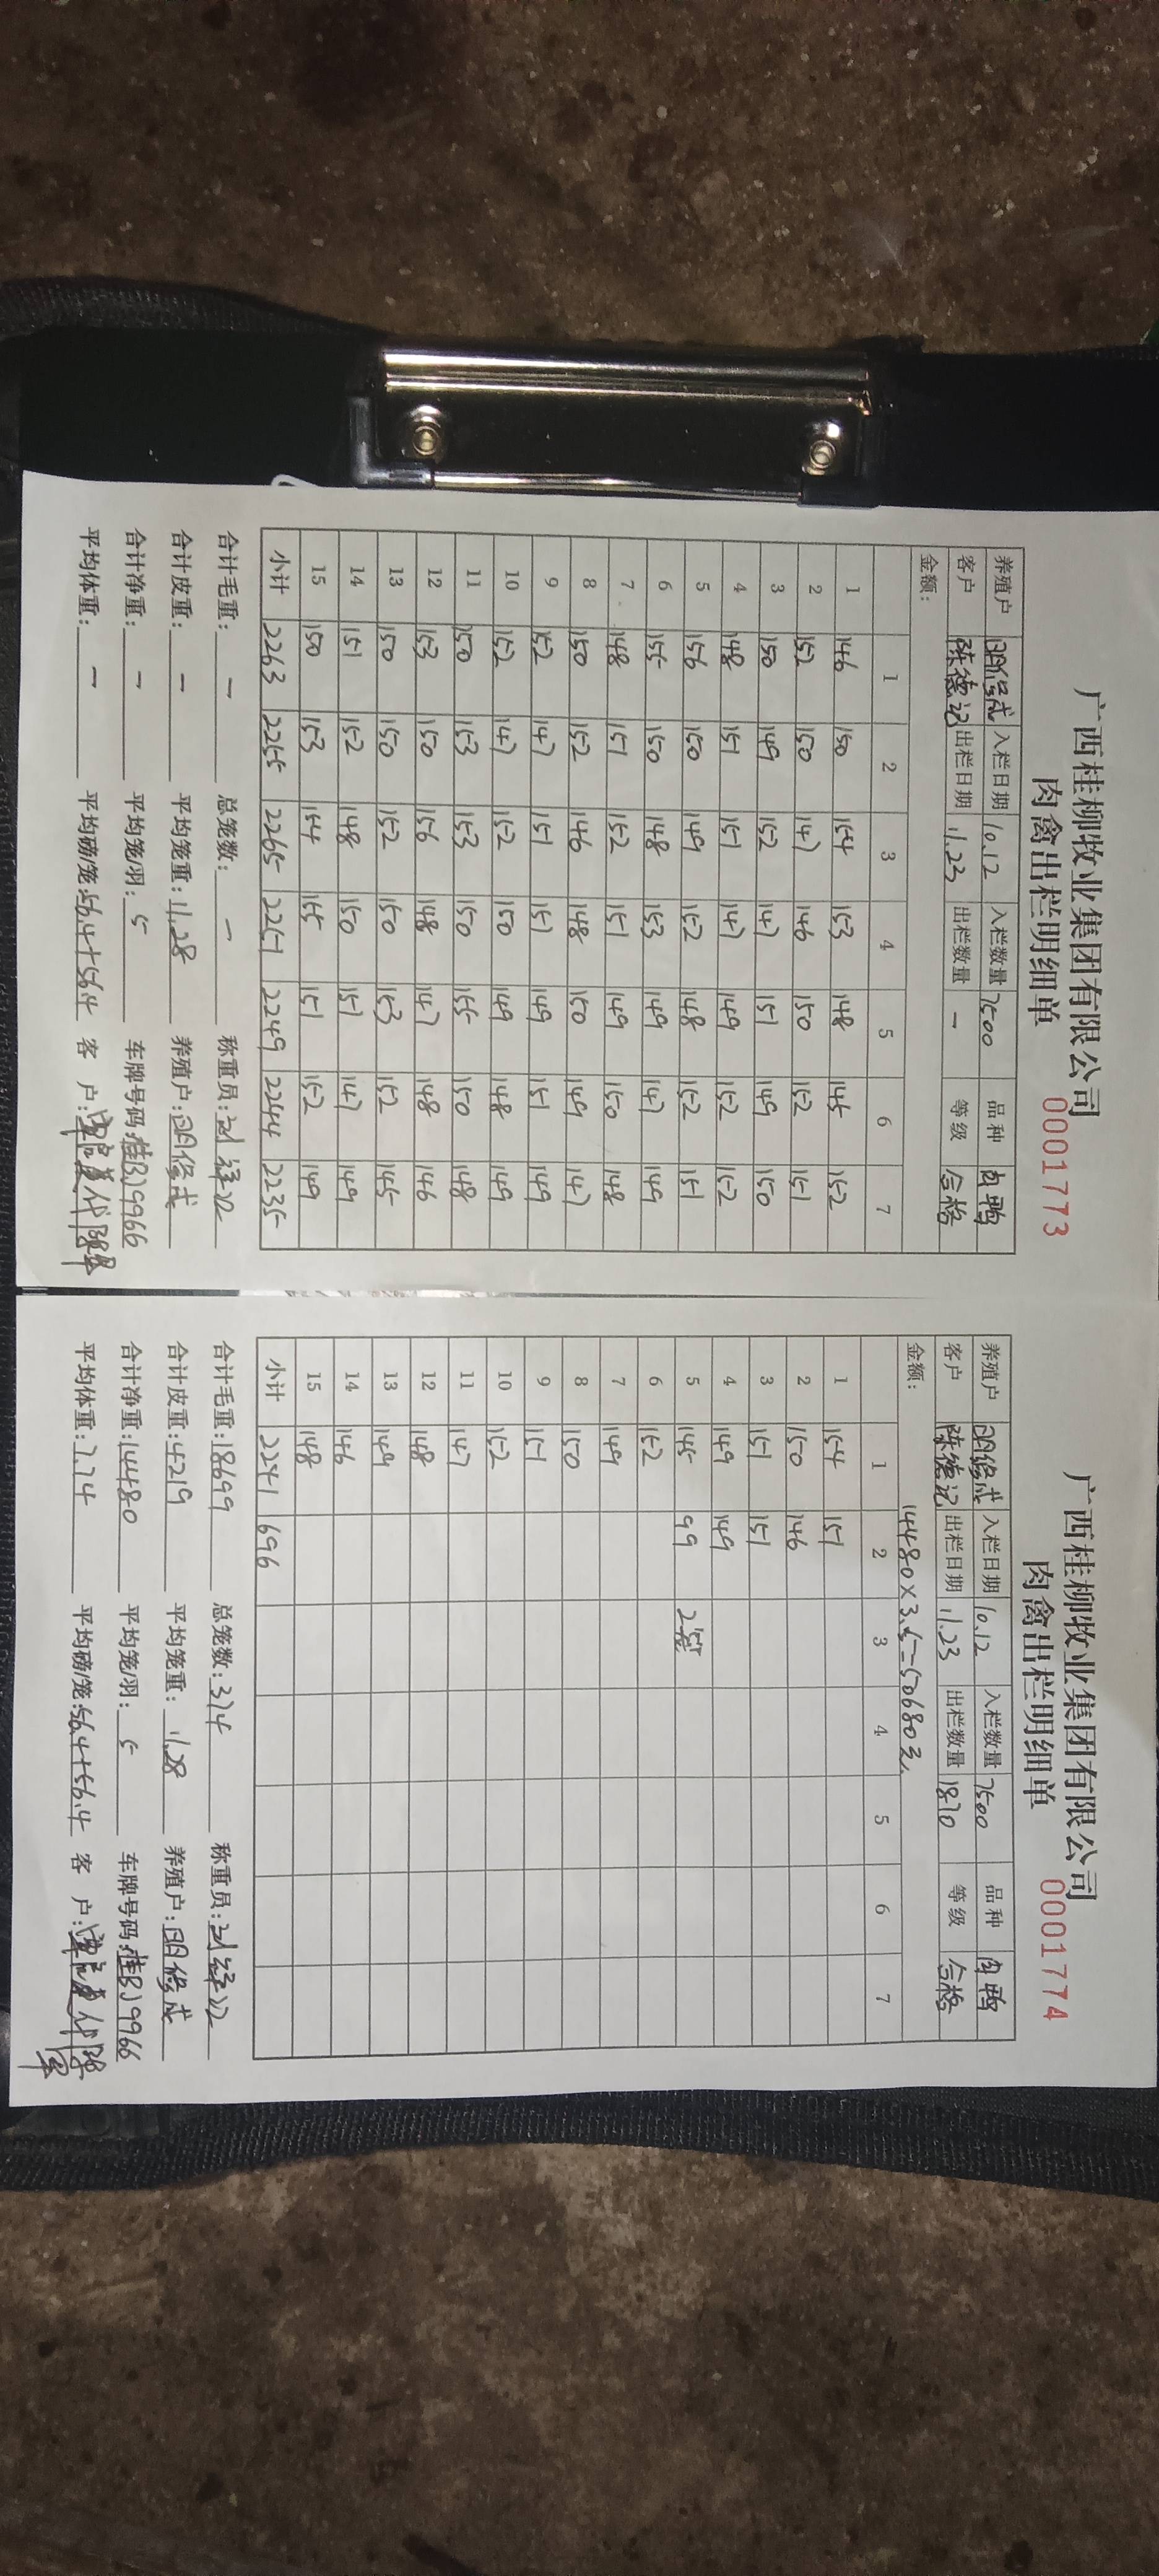 广西桂柳牧业集团有限公司
肉禽出栏明细单 0001773
养殖户 明修成 入栏日期 10.12 入栏数量 7500 品种 肉鸭
客户 陈德记 出栏日期 11.23 出栏数量 — 等级 合格
金额:
1 2 3 4 5 6 7
1 146 150 154 153 148 145 152
2 152 150 147 146 150 152 151
3 150 149 152 147 151 149 150
4 148 151 151 147 149 152 152
5 156 150 149 152 148 152 151
6 155 150 148 153 149 147 149
7 148 151 152 151 149 150 148
8 150 152 146 148 150 149 147
9 152 147 151 151 149 151 149
10 152 147 152 150 149 148 149
11 150 153 153 150 155 150 148
12 153 150 156 148 147 148 146
13 150 150 152 150 153 152 145
14 151 152 148 150 151 147 149
15 150 153 154 155 151 152 149
小计 2263 2255 2265 2251 2249 2244 2235
合计毛重: — 总笼数: — 称重员:
合计皮重: — 平均笼重: 11.28 养殖户: 明修成
合计净重: — 平均笼/羽: 5 车牌号码: 桂BJ9966
平均体重: — 平均磅/笼: 56.4+56.4 客 户:
广西桂柳牧业集团有限公司
肉禽出栏明细单 0001774
养殖户 明修成 入栏日期 10.12 入栏数量 7500 品种 肉鸭
客户 陈德记 出栏日期 11.23 出栏数量 1870 等级 合格
金额: 14480×3.5=50680元
1 2 3 4 5 6 7
1 154 151
2 150 146
3 151 151
4 149 149
5 145 99 2笼
6 152
7 149
8 150
9 151
10 152
11 147
12 148
13 149
14 146
15 148
小计 2241 696
合计毛重: 18699 总笼数: 374 称重员:
合计皮重: 4219 平均笼重: 11.28 养殖户: 明修成
合计净重: 14480 平均笼/羽: 5 车牌号码: 桂BJ9966
平均体重: 7.74 平均磅/笼: 56.4+56.4 客 户: